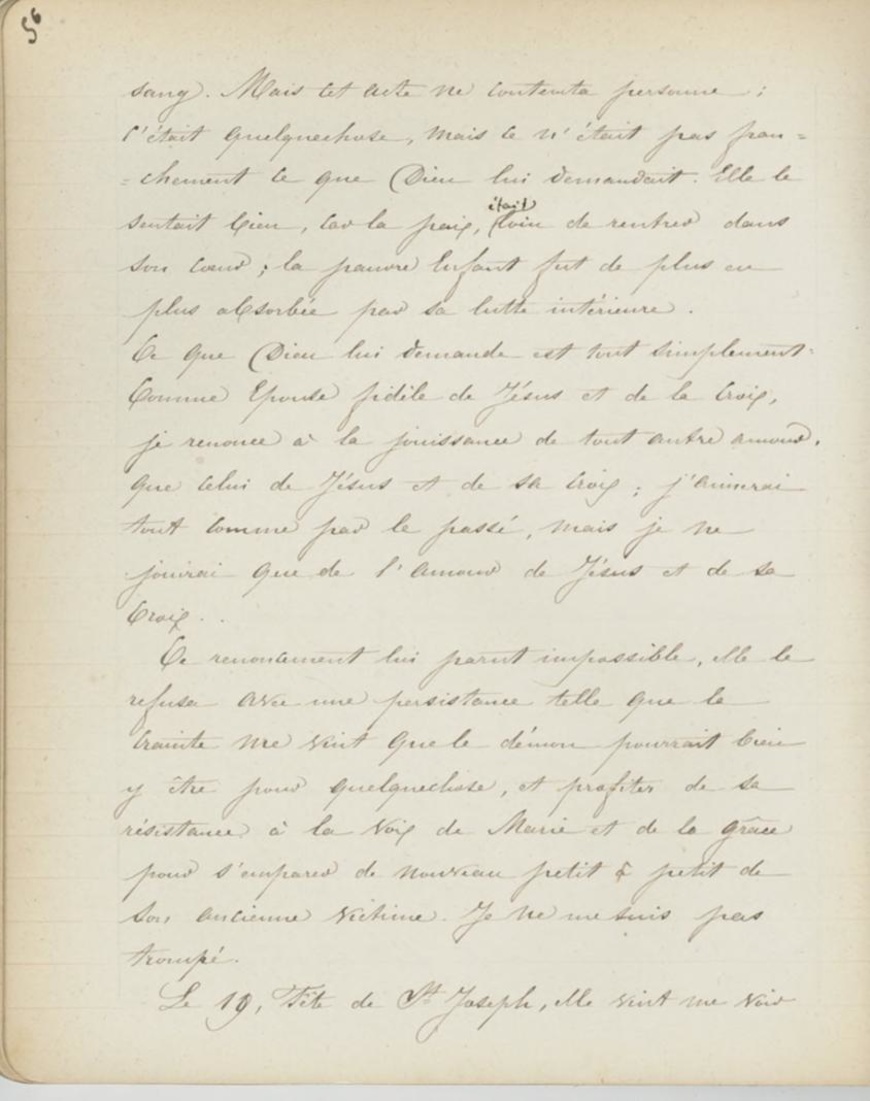 56
sang. Mais cet acte ne contenta personne ;
c'était quelquechose, mais ce n'était pas fran=
=chement ce que Dieu lui demandait. Elle le
sentait bien, car la paix, était loin de rentrer dans
son cœur ; la pauvre Enfant fut de plus en
plus absorbée par sa lutte intérieure.
Ce que Dieu lui demande est tout simplement.
Comme Epouse fidèle de Jésus et de la Croix,
je renonce à la jouissance de tout autre amour,
que celui de Jésus et de sa Croix ; j'aimerai
tout comme par le passé, mais je ne
jouirai que de l'amour de Jésus et de sa
Croix. .
Ce renoncement lui parut impossible, elle le
refusa avec une persistance telle que la
crainte me vint que le démon pourrait bien
y être pour quelquechose, et profiter de sa
résistance à la voix de Marie et de la grâce
pour s'emparer de nouveau petit à petit de
son ancienne victime. Je ne me suis pas
trompé.
Le 19, Fête de St Joseph, elle vint me voir